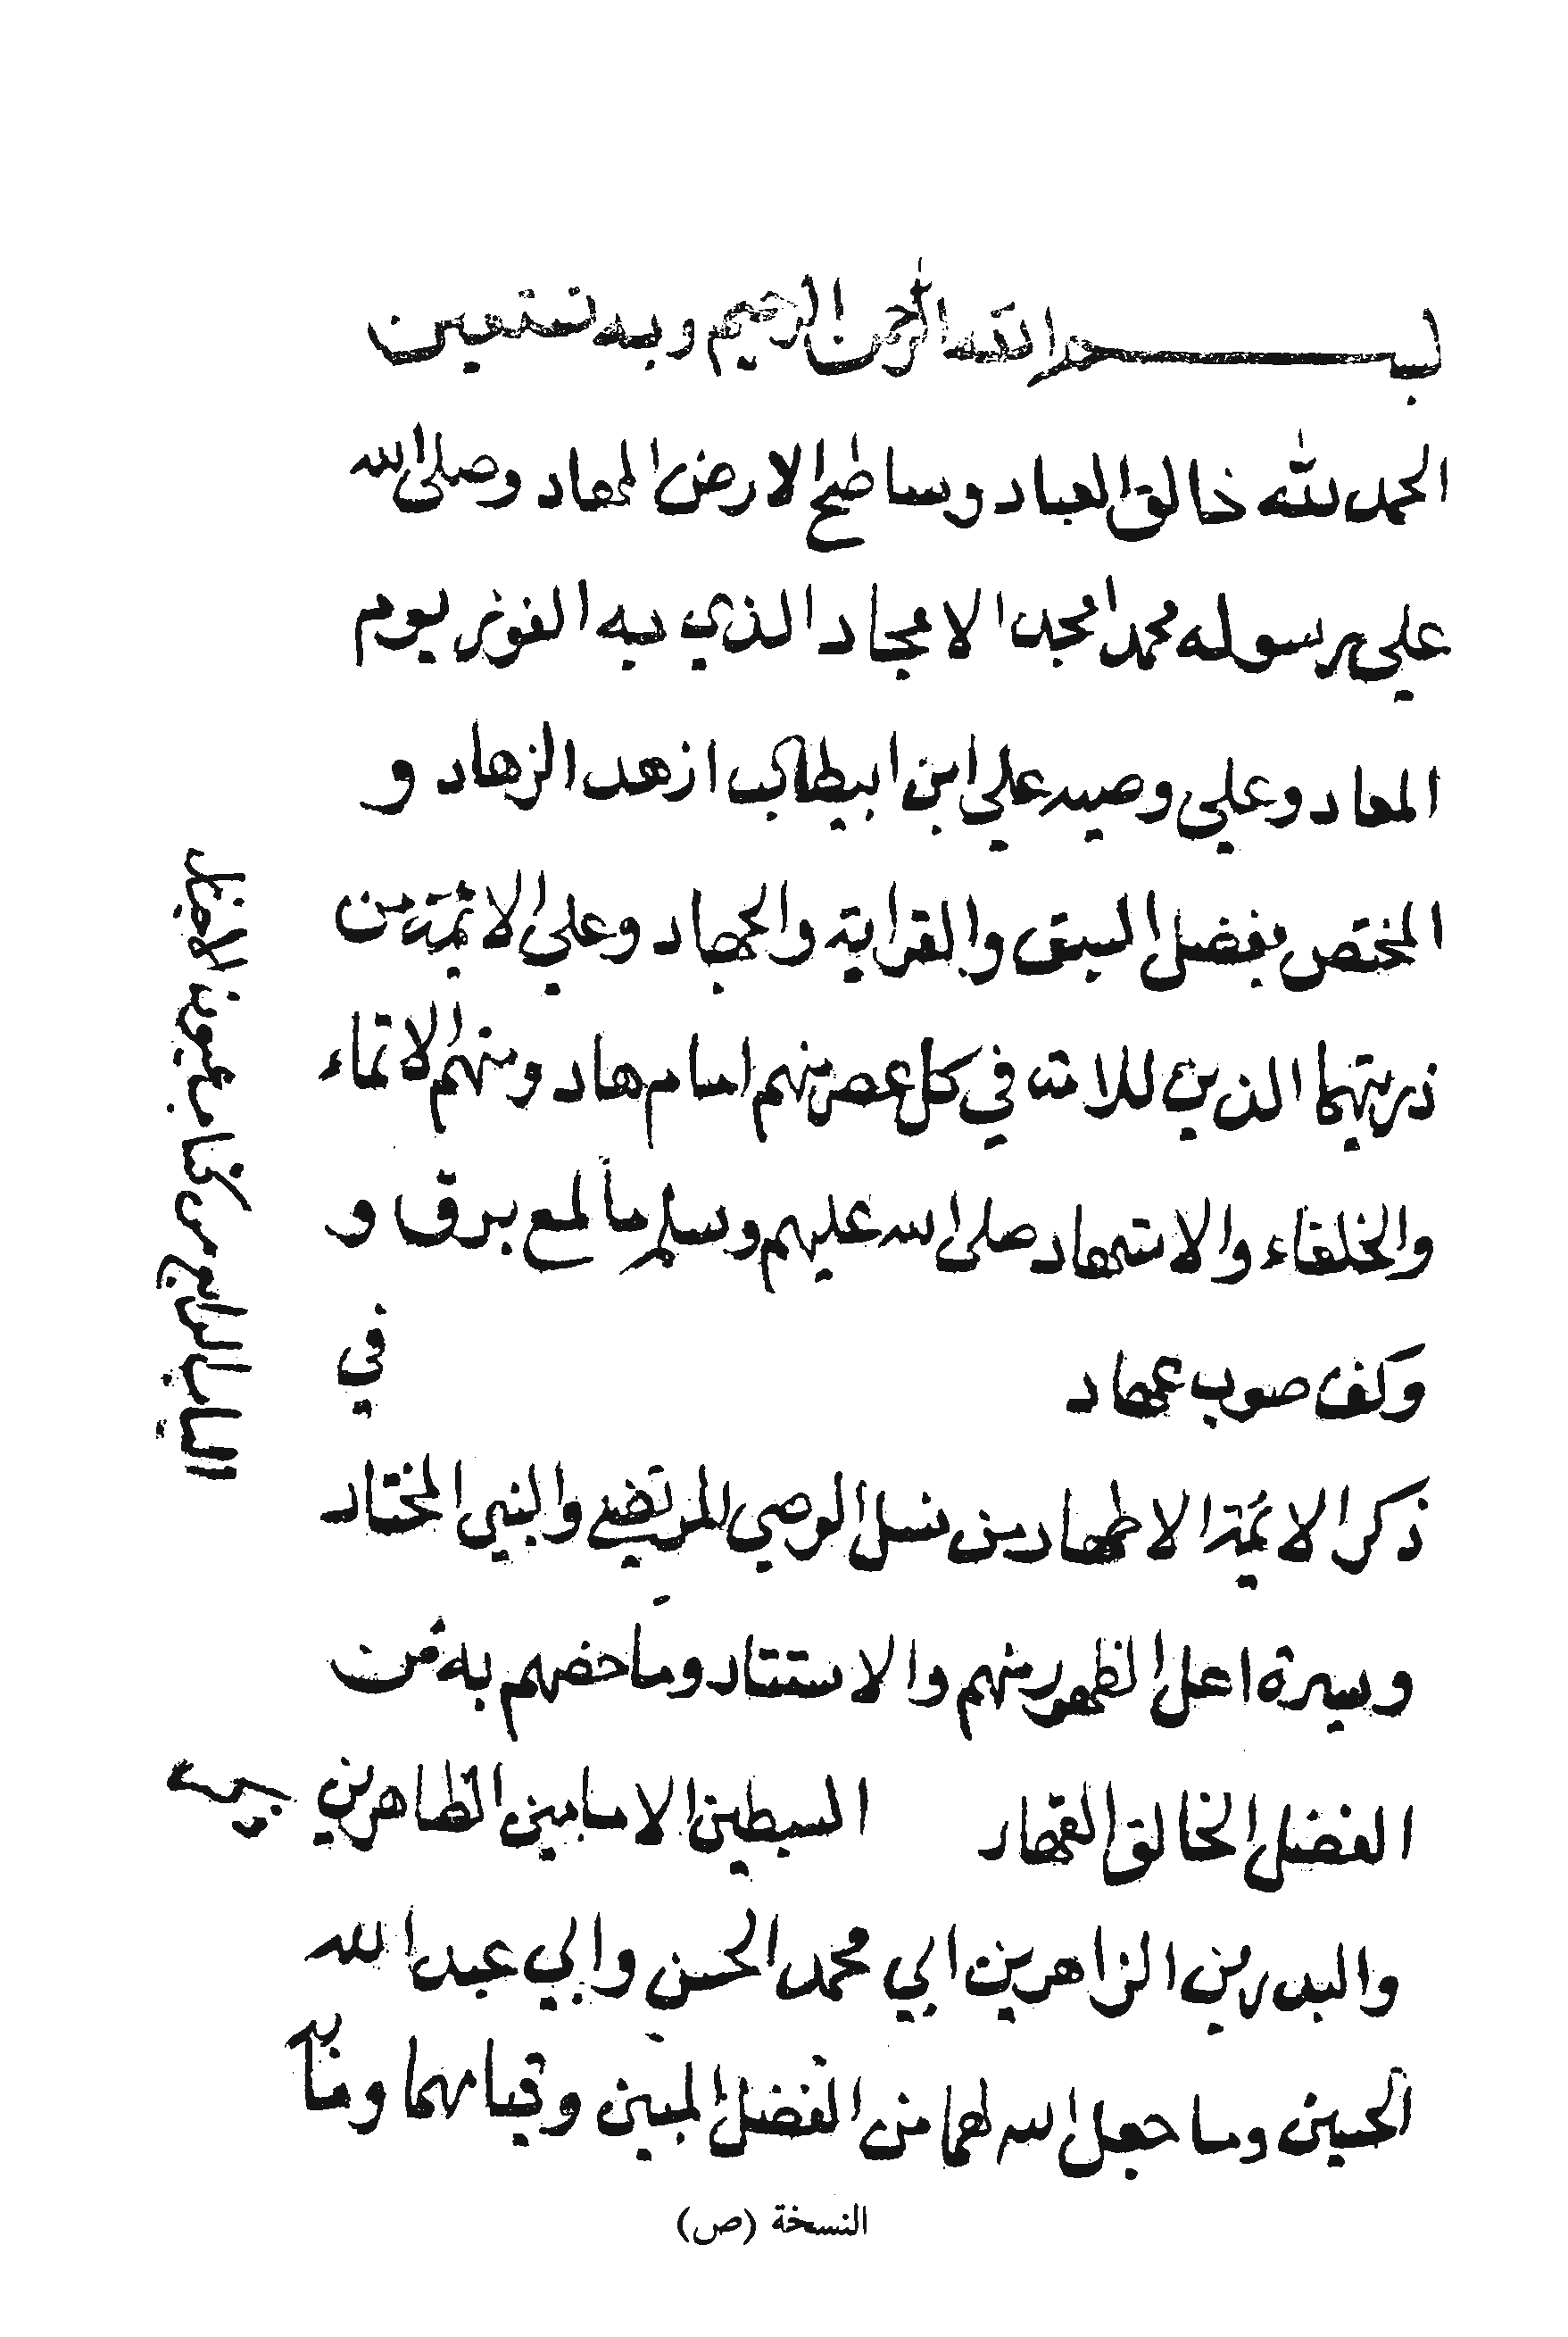 بسم الله الرحمن الرحيم وبه نستعين
الحمد لله خالق العباد وساطح الارض المهاد وصلى الله
على رسوله محمد امجد الامجاد الذي به الفوز يوم
المعاد وعلي وصيه علي ابن ابيطالب ازهد الزهاد و
المختص بفضل السبق والقرابة والجهاد وعلي الائمة من
ذريتهما الذين للامة في كل عصر منهم امام هاد ومنهم الاتماء
والخلفاء والاشهاد صلى الله عليهم وسلم ما لمع برق و
وكف صوب عهاد في
ذكر الائمة الاطهار من نسل الوصي المرتضي والنبي المختار
وسيرة اهل الظهور منهم والاستتار وما خصهم به من
الفضل الخالق القهار السبطين الامامين الطاهرين
والبدرين الزاهرين ابي محمد الحسن وابي عبد الله
الحسين وما جعل الله لهما من الفضل المبين وقيامهما
الباب الرابع من كتاب عيون الاخبار
النسخة (ص)